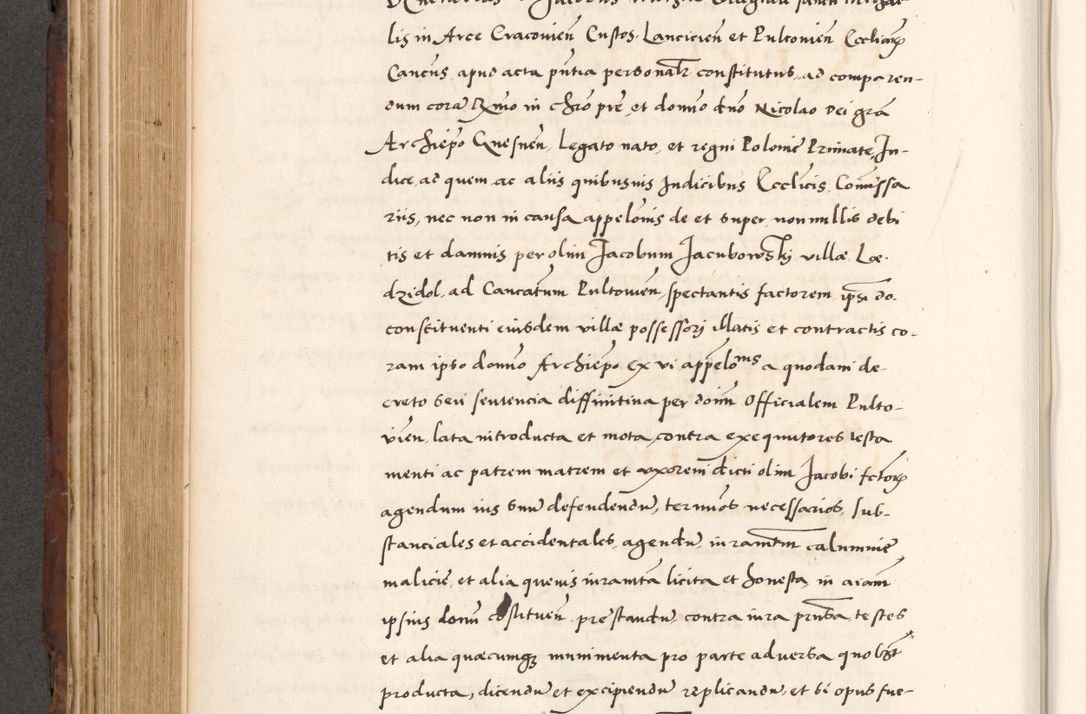 lis in Arce Cracovień Custos, Lancicień et Pultovień Eccliarꝫ
Cancus, apud acta pn̄tia personalr constitutus, ad comparen-
dum corā Rmo in chro pre et domno dno Nicolao Dei grā
Archiepo Gnesneń, Legato nato, et regni Polonie Primate, Ju-
dice, ad quem ac aliis quibusuis Judicibus Ecclicis, Comissa
riis, nec non in causa appelonis de et super nonnullis debi
tis et damnis per olim Jacobum Jacubowski villæ Læ-
dzidol, ad Cancatum Pultouień spectantis factorem ipsi do.
constituenti eiusdem villæ possessori illatis et contractis co-
ram ipso domno Archiepo ex vi appelonis a quodam de-
creto seu sentencia diffinitiua per doim Officialem Pulto-
vień lata introducta et mota contra exequutores testa
menti ac patrem matrem et vxorem dicti olim Jacobi fctorꝫ
agendum ius suu defendendu, termios necessarios, sub-
stanciales et accidentales, agendu, iuramtm calumnie
malicie, et alia queuis iuramta licita et honesta, in aiam
ipsius domi costitueń prestandu contra iura prnsa, testes
et alia quæcumqꝫ munimenta pro parte aduersa quolibt
producta, dicendu et excipiendu replicandu, et si opus fue-